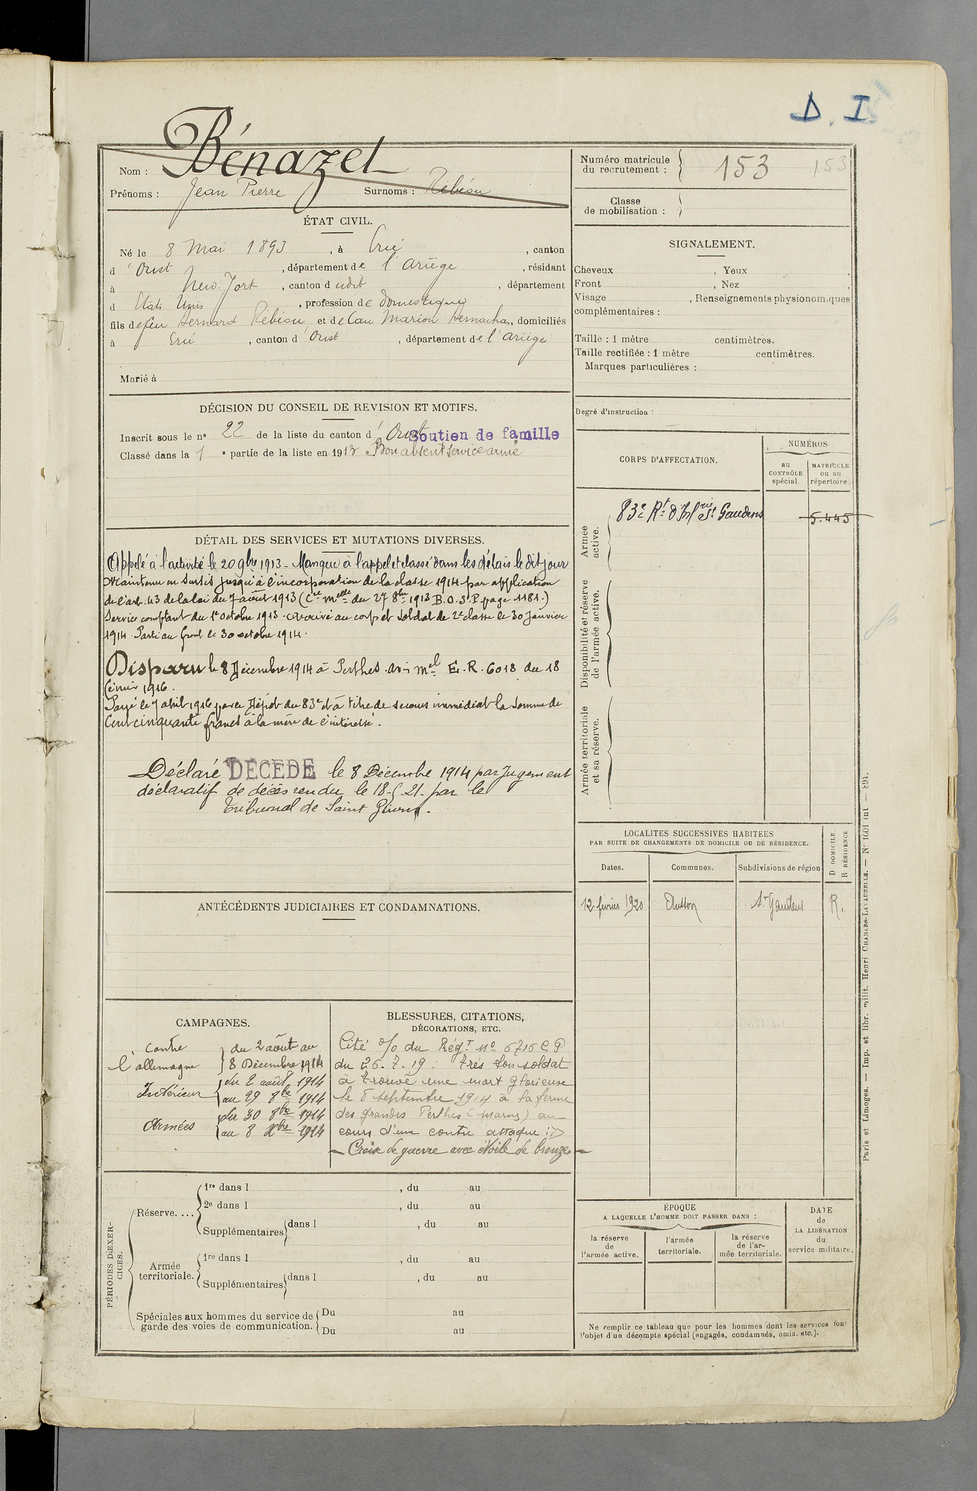 D. I
Bénazet
Nom :
Prénoms : Jean Pierre Surnoms :
Numéro matricule
du recrutement : 153 153
Classe
de mobilisation :
ÉTAT CIVIL.
Né le 8 Mai 1893, à Ercé, canton
d'Oust, département de l'Ariège, résidant
à New-York, canton dudit, département
d Etats Unis, profession de Domestique
fils de feu Bernard et de Marion, domiciliés
à Ercé, canton d'Oust, département de l'Ariège
Marié à
SIGNALEMENT.
Cheveux , Yeux
Front , Nez
Visage , Renseignements physionomiques
complémentaires :
Taille : 1 mètre centimètres.
Taille rectifiée : 1 mètre centimètres.
Marques particulières :
Degré d'instruction :
DÉCISION DU CONSEIL DE REVISION ET MOTIFS.
Inscrit sous le n° 22 de la liste du canton d'Oust Soutien de famille
Classé dans la 1e partie de la liste en 1913 Bon absent Service armé
DÉTAIL DES SERVICES ET MUTATIONS DIVERSES.
Appelé à l'activité le 20 9bre 1913 - Manque à l'appel et classé dans les délais le dit jour
Maintenu en sursis jusqu'à l'incorporation de la classe 1914 par application
de l'art. 43 de la loi du 7 août 1913 (Cre melle du 27 8bre 1913 B.O. St P. page 1181.)
Service comptant du 1er octobre 1913. Arrivé au corps et soldat de 2e classe le 30 janvier
1914 Parti au front le 30 octobre 1914.
Disparu le 8 Décembre 1914 à Perthes. Avis mel E. R. 6018 du 18
février 1916.
Payé le 7 avril 1916 par le Dépôt du 83e à titre de secours immédiat la somme de
Cent cinquante francs à la mère de l'intéressé.
Déclaré DÉCÉDÉ le 8 Décembre 1914 par Jugement
déclaratif de décès rendu le 18-5-21 par le
Tribunal de Saint Girons.
CORPS D'AFFECTATION.
NUMÉROS
au
CONTRÔLE
spécial.
MATRICULE
ou au
répertoire.
Armée
active.
83e Rt d'Infrie St Gaudens 5.445
Disponibilité et réserve
de l'armée active.
Armée territoriale
et sa réserve.
LOCALITES SUCCESSIVES HABITEES
PAR SUITE DE CHANGEMENTS DE DOMICILE OU DE RÉSIDENCE.
Dates.
Communes.
Subdivisions de région
D DOMICILE
R RÉSIDENCE
12 février 1920 St Gaudens R.
ANTÉCÉDENTS JUDICIAIRES ET CONDAMNATIONS.
CAMPAGNES.
Contre
l'allemagne
du 2 août au
8 Décembre 1914
Intérieur
du 2 août 1914
au 29 8bre 1914
Armées
du 30 8bre 1914
au 8 Xbre 1914
BLESSURES, CITATIONS,
DÉCORATIONS, ETC.
Cité o/o du Régt No 6716 C P
du 26.7.19 : très bon soldat
a trouvé une mort glorieuse
le 8 septembre 1914 à la ferme
des grandes Perthes (Marne) au
cours d'une contre attaque :
- Croix de guerre avec étoile de bronze -
PÉRIODES D'EXERCICES.
Réserve. ...
1re dans l , du au
2e dans l , du au
Supplémentaires dans l , du au
Armée
territoriale.
1re dans l , du au
Supplémentaires dans l , du au
Spéciales aux hommes du service de
garde des voies de communication.
Du au
Du au
ÉPOQUE
A LAQUELLE L'HOMME DOIT PASSER DANS :
la réserve
de
l'armée active.
l'armée
territoriale.
la réserve
de l'ar-
mée territoriale.
DATE
de
LA LIBÉRATION
du
service militaire.
Ne remplir ce tableau que pour les hommes dont les services font
l'objet d'un décompte spécial (engagés, condamnés, omis, etc.).
Paris et Limoges. — Imp. et libr. milit. Henri CHARLES-LAVAUZELLE.